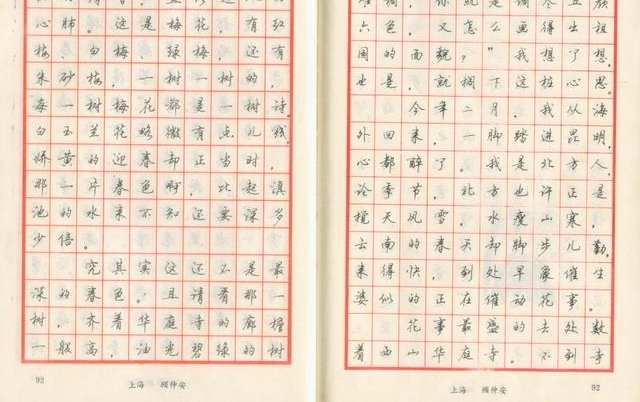 六色，又怎么画得出祖
国的面貌？”我想了想，
也是，就搁下这桩心思。
今年二月，我从海
外回来，一脚踏进昆明，
心都醉了。我是北方人，
论季节，北方也许正是
搅天风雪，水瘦山寒，
云南的春天却脚步儿勤，
来得快，到处早象催生
婆似的正在催动花事。
花事最盛的去处数
着西山华庭寺。不到寺
上海 顾仲安 92
心肺。这是梅花，有红
梅、白梅、绿梅，还有
朱砂梅，一树一树的，
每一树梅花都是一树诗。
白玉兰花略微有点儿残，
娇黄的迎春却正当时，
那一片春色啊，比起滇
池的水来不知还要深多
少倍。
究其实这还不是最
深的春色。且请看那一
树，齐着华庭寺的廊檐
一般高，油光碧绿的树
93 上海 顾仲安